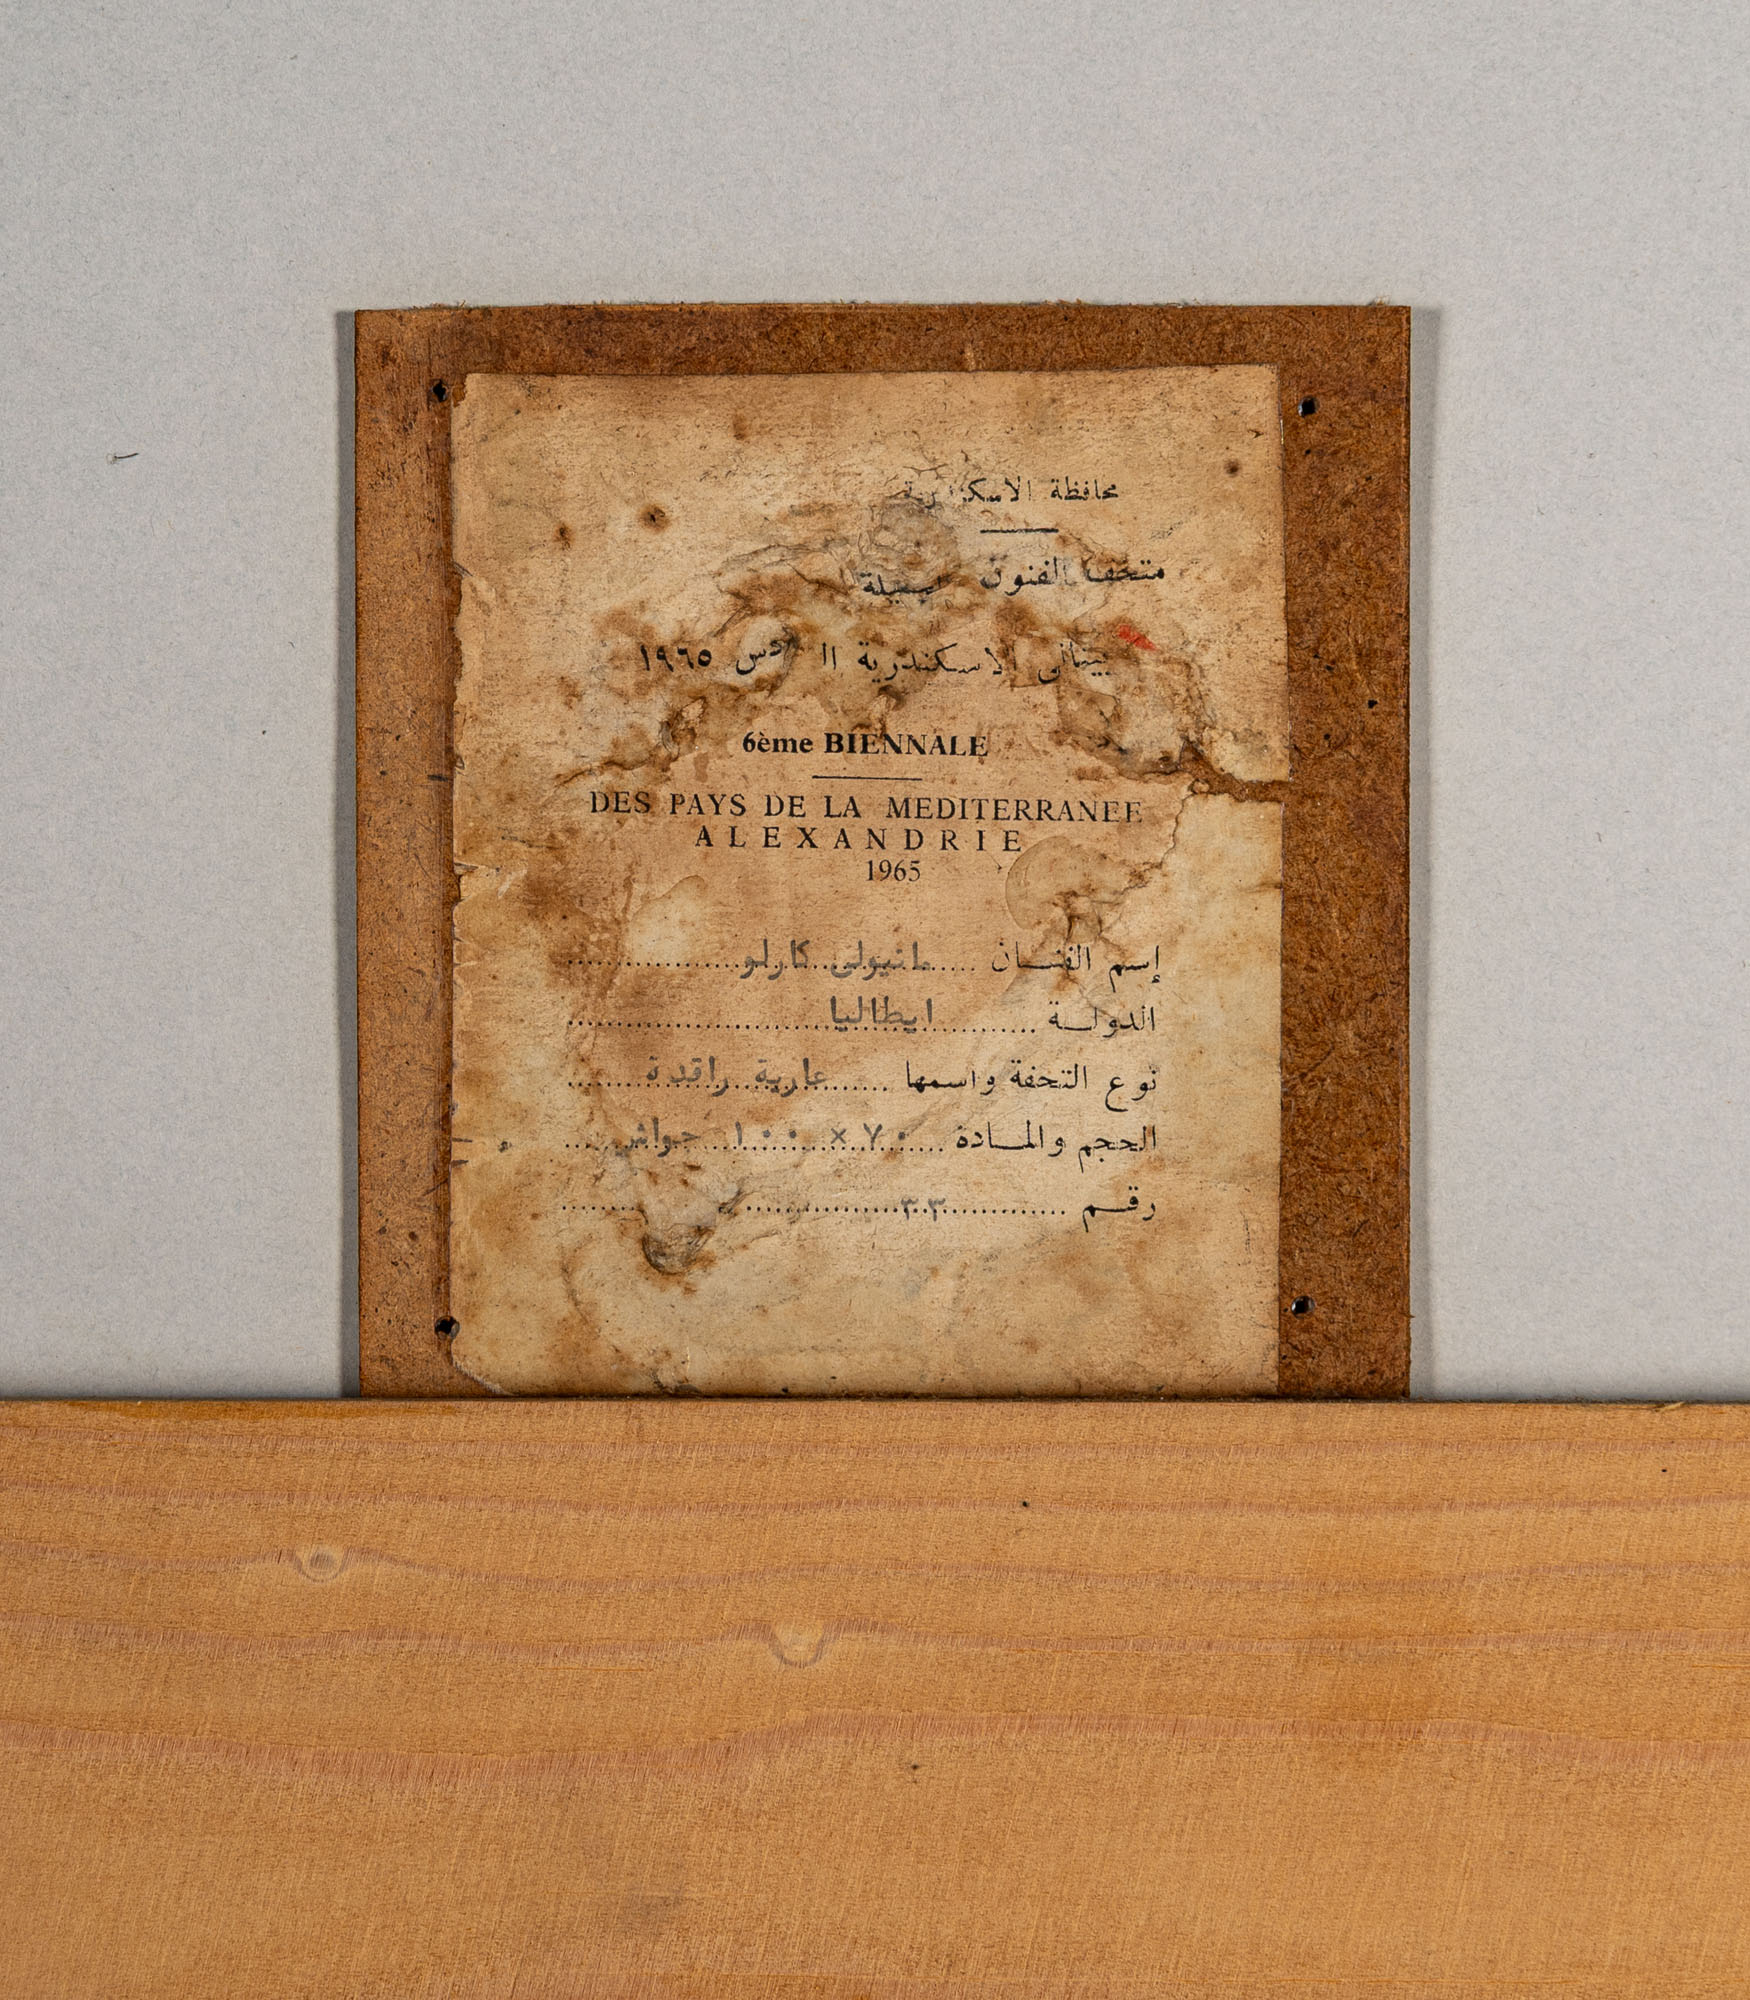 محافظة الاسكندرية
متحف الفنون الجميلة
بينالى الاسكندرية السادس ١٩٦٥
6ème BIENNALE
DES PAYS DE LA MEDITERRANEE
ALEXANDRIE
1965
إسم الفنـان مانيولى كارلو
الدولـة ايطاليا
نوع التحفة واسمها عارية راقدة
الحجم والمـادة ٧٠ × ١٠٠ جواش
رقـم ٣٣